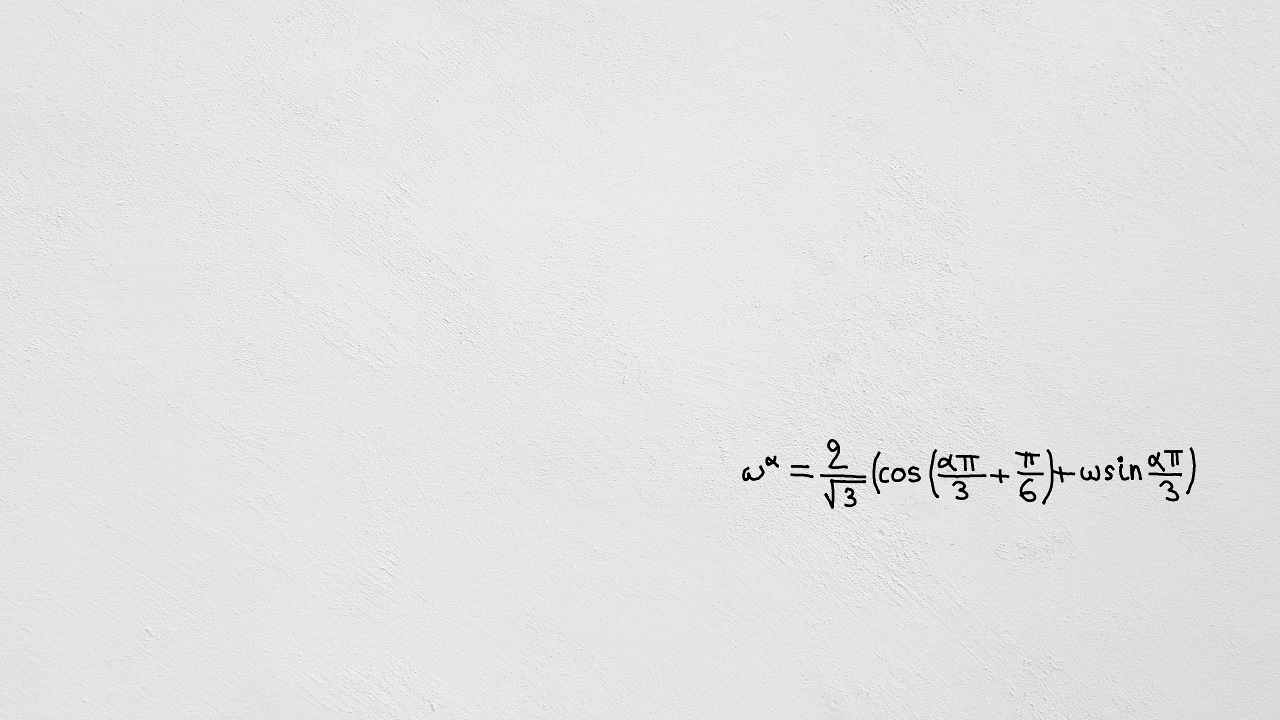 ω^α = 2/√3 (cos(απ/3 + π/6) + ω sin απ/3)